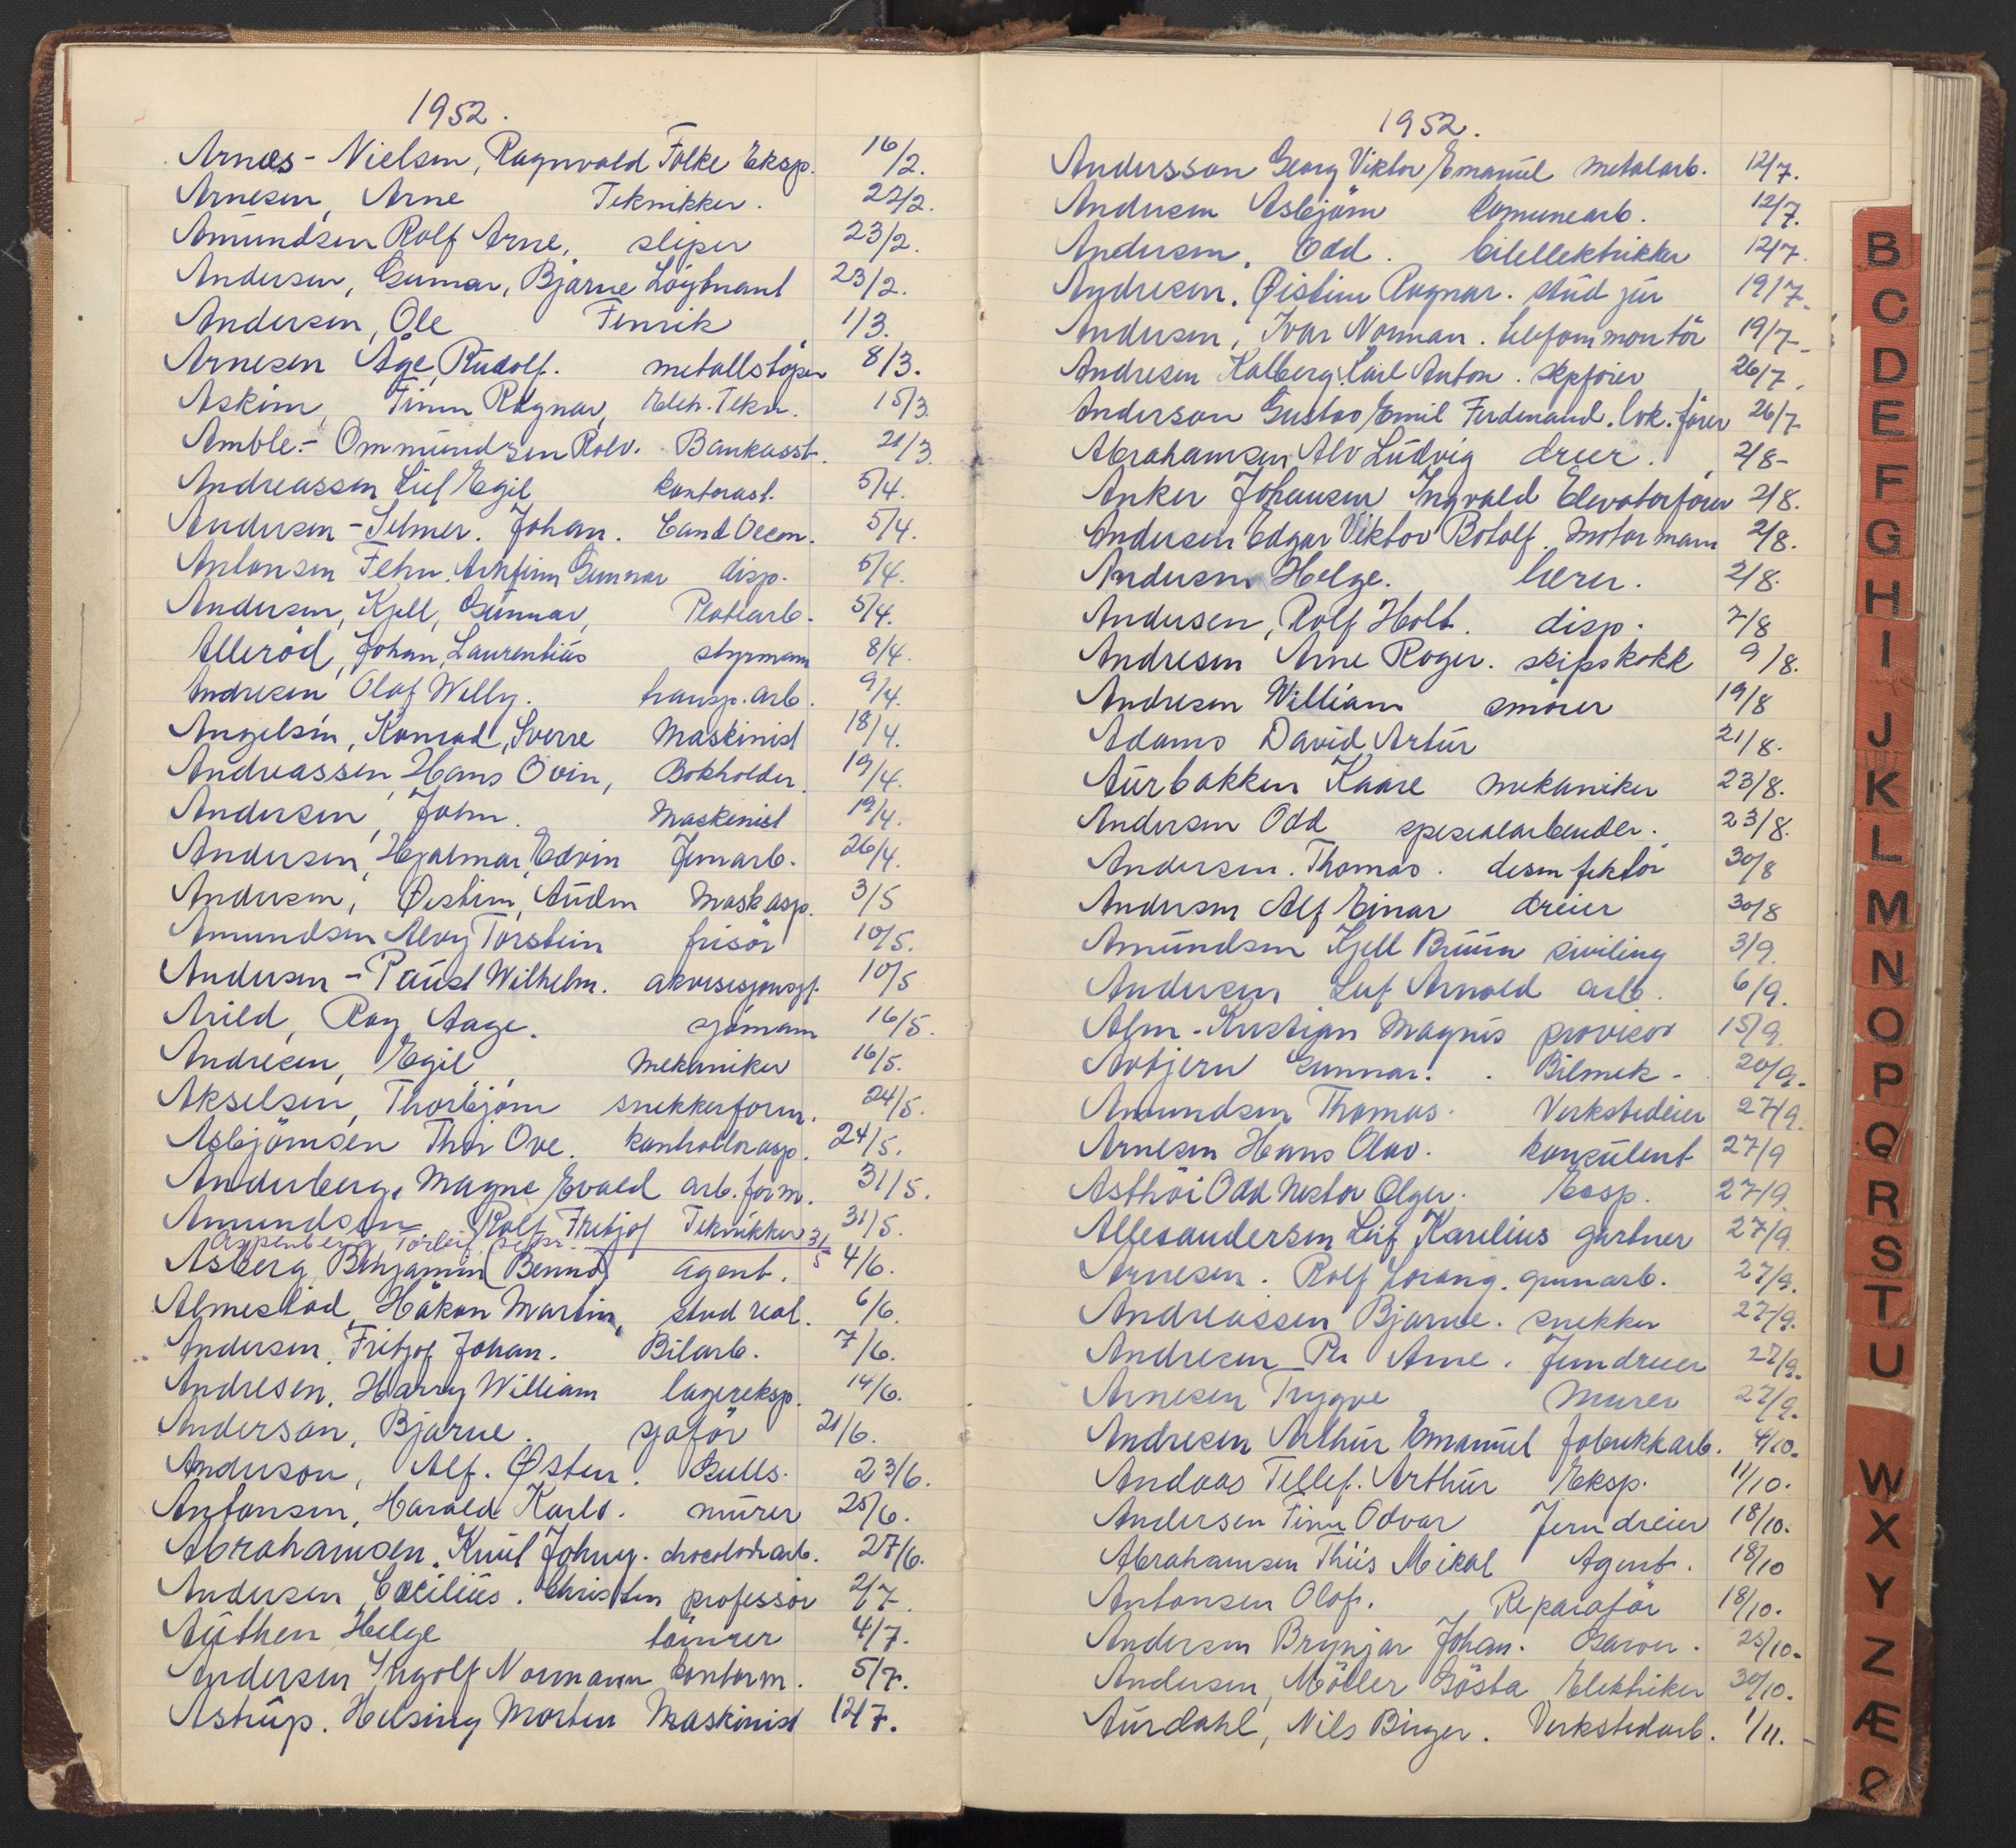 1952.
Arnæs - Nielsen, Ragnvald Falke Eksp. 16/2.
Arnesen, Arne Teknikker. 22/2.
Amundsen Rolf Arne, sliper 23/2.
Andersen, Gunnar, Bjarne Löytnant 23/2.
Andersen, Ole Fenrik 1/3.
Arnesen Åge, Rudolf. metallstöper 8/3.
Askim, Finn Ragnar, Elek. Tekn. 15/3.
Amble - Ommundsen Rolv. Bankasst. 21/3.
Andreassen Leif Egil kontorast. 5/4.
Andersen - Selmer. Johan. Cand Oecon. 5/4.
Antonsen Fehn, Arnfinn Gunnar disp. 5/4.
Andersen, Kjell, Gunnar, Platearb. 5/4.
Alleröd, Johan, Laurentius styrmann 8/4.
Andresen Olaf Willy. transp. arb. 9/4.
Angelsin, Konrad, Sverre Maskinist 18/4.
Andreassen, Hans Ovin, Bokholder. 19/4.
Andersen, John. Maskinist 19/4.
Andersen, Hjalmar, Edvin Jernarb. 26/4.
Andersen, Øistein, Audun Mask asp. 3/5
Amundsen Alvy Torstein frisör 10/5.
Andersen - Paust Wilhelm. akvisisjonssj. 10/5
Arild, Roy Aage. sjömann 16/5.
Andresen, Egil, Mekaniker 16/5.
Akselsen, Thorbjörn snekkerform. 24/5.
Asbjörnsen Thor Ove. kontrollörasp. 24/5.
Anderberg, Magne Evald arb. form. 31/5.
Amundsen Rolf Fritjof Teknikker 31/5.
Appenberg, Torleif, 31/5
Åsberg, Benjamin (Benno) agent. 4/6.
Almestad, Håkon Martin, stud real. 6/6.
Andersen, Fritjof Johan. Bilarb. 7/6.
Andresen, Harry William lagereksp. 14/6.
Anderson, Bjarne. sjåför 21/6.
Anderson, Alf. Østen. Gulls. 23/6.
Antonsen, Harald Karlo. murer 25/6.
Abrahamsen. Knut Johny. chocoladearb. 27/6.
Andersen Cæcilius. Christen professor 2/7.
Authen Helge tömrer 4/7.
Andersen Ingolf Normann kontorm. 5/7.
Astrup. Helsing Morten Maskinist 12/7.
1952.
Andersson Georg Viktor Emanuel Metalarb. 12/7.
Andersen Asbjörn Comunearb. 12/7.
Andersen, Odd. bilellektrikker 12/7.
Andresen. Øistein Ragnar. stud jur 19/7.
Andersen, Ivar Norman. telefonmontör 19/7.
Andresen Kalberg. Carl Anton. skpförer 26/7.
Anderson Gustav Emil Ferdinand. lok. förer 26/7.
Abrahamsen Alv Ludvig dreier. 2/8-
Anker Johansen Ingvald Elevatorförer 2/8.
Andersen Edgar Viktor Botolf Motormann 2/8.
Andersen Helge. lærer. 2/8.
Andersen, Rolf Holt. disp. 7/8
Andresen Arne Roger. skipskokk 9/8.
Andresen William smörer 19/8
Adams David Artur 21/8.
Aurbakken Kaare mekaniker 23/8.
Andersen Odd spesialarbeider. 23/8.
Andersen. Thomas. desinfektör 30/8
Andersen Alf Einar dreier 30/8
Amundsen Kjell Bruun siviling 3/9.
Andersen Leif Arnold arb. 6/9.
Alm - Kristian Magnus provisor 15/9.
Avbjern Gunnar. Bilmek - 20/9.
Amundsen Thomas. Verkstedeier 27/9.
Arnesen Hans Olav. konsulent 27/9
Asthöi Odd Nestor Olger. Eksp. 27/9.
Allexandersen Leif Karelius gartner 27/9.
Arnesen. Rolf Lorang. gummarb. 27/9.
Andreassen Bjarne. snekker 27/9.
Andresen Per Arne. Jerndreier 27/9.
Arnesen Trygve Murer 27/9.
Andresen Arthur Emanuel fabrikkarb. 4/10.
Andaas Tellef. Arthur Eksp. 11/10.
Andersen Finn Odvar Jerndreier 18/10.
Abrahamsen Thiis Mikal Agent. 18/10
Antonsen Olaf. Reparatör 18/10.
Andersen Brynjar Johan. Garver. 25/10.
Andersen, Möller Gösta Elektriker 30/10.
Aurdahl, Nils Birger. Verkstedarb. 1/11.
B
C
D
E
F
G
H
I
J
K
L
M
N
O
P
Q
R
S
T
U
W
X
Y
Z
Æ